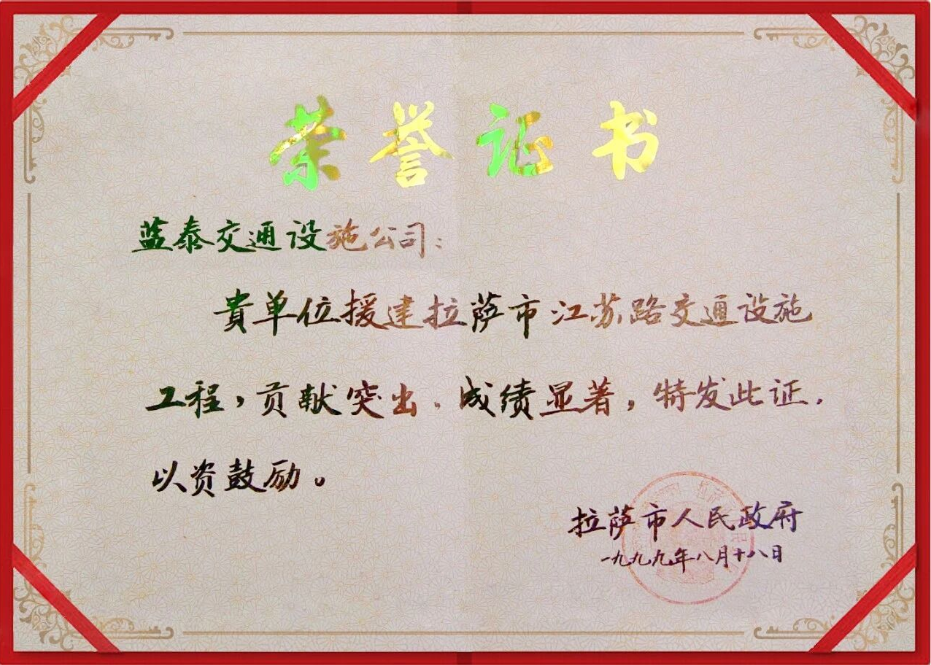 荣誉证书
蓝泰交通设施公司：
貴单位援建拉萨市江苏路交通设施
工程，贡献突出．成绩显著，特发此证．
以资鼓励。
拉萨市人民政府
一九九九年八月十八日